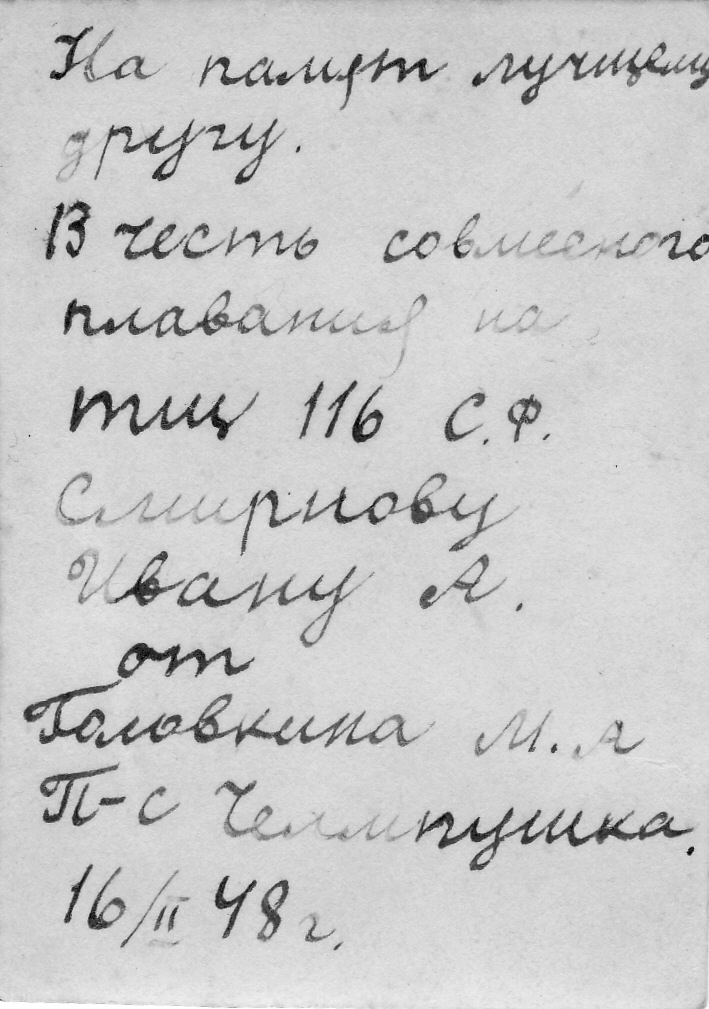 На памят лучшему
другу.
В честь совмесного
плавания на
тщ 116 С.Ф.
Смирнову
Ивану А.
от
Головкина М. А
П-с Челмпушка.
16/II 48 г.